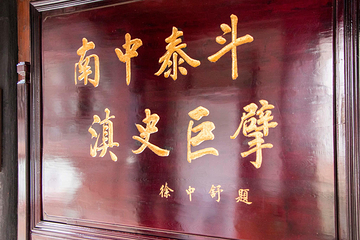 南中泰斗
滇史巨擘
徐中舒题